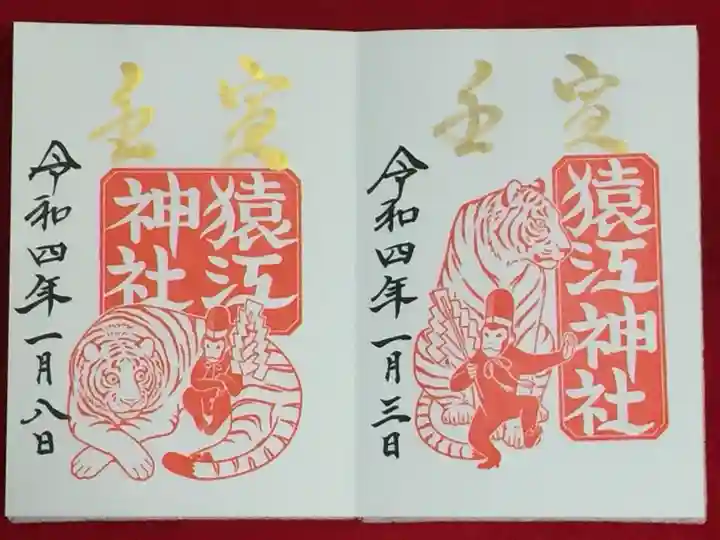 壬寅
猿江神社
令和四年一月三日
壬寅
猿江
神社
令和四年一月八日